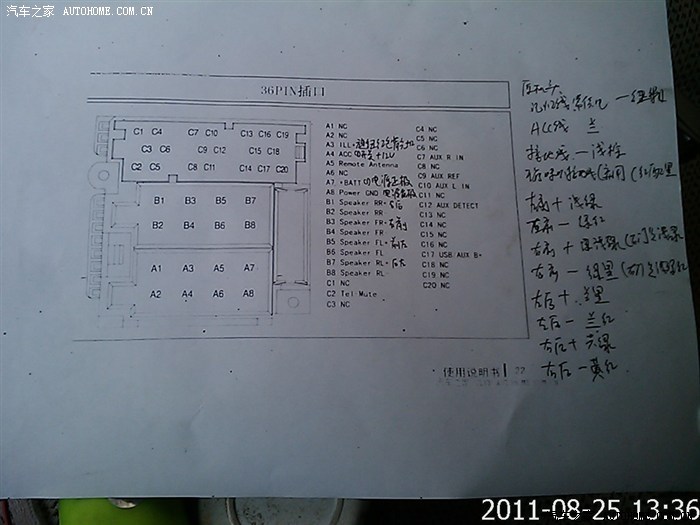 汽车之家 AUTOHOME.COM.CN
36PIN插口
C1 C4 C7 C10 C13 C16 C19
C3 C6 C9 C12 C15 C18
C2 C5 C8 C11 C14 C17 C20
B1 B3 B5 B7
B2 B4 B6 B8
A1 A3 A5 A7
A2 A4 A6 A8
A1 NC
A2 NC
A3 ILL+
A4 ACC +12V
A5 Remote Antenna
A6 NC
A7 +BATT 电源正极
A8 Power GND 电源负极
B1 Speaker RR+ 右后
B2 Speaker RR
B3 Speaker FR+ 右前
B4 Speaker FR
B5 Speaker FL+ 左前
B6 Speaker FL
B7 Speaker RL+ 左后
B8 Speaker RL
C1 NC
C2 Tel-Mute
C3 NC
C4 NC
C5 NC
C6 NC
C7 AUX R IN
C8 NC
C9 AUX REF
C10 AUX L IN
C11 NC
C12 AUX DETECT
C13 NC
C14 NC
C15 NC
C16 NC
C17 USB AUX B+
C18 NC
C19 NC
C20 NC
ACC线 兰
接地线 — 浅棕
右前 + 浅绿
右前 — 绿红
左后 + 兰黑
左后 — 兰红
右后 — 黄红
使用说明书 22
2011-08-25 13:36